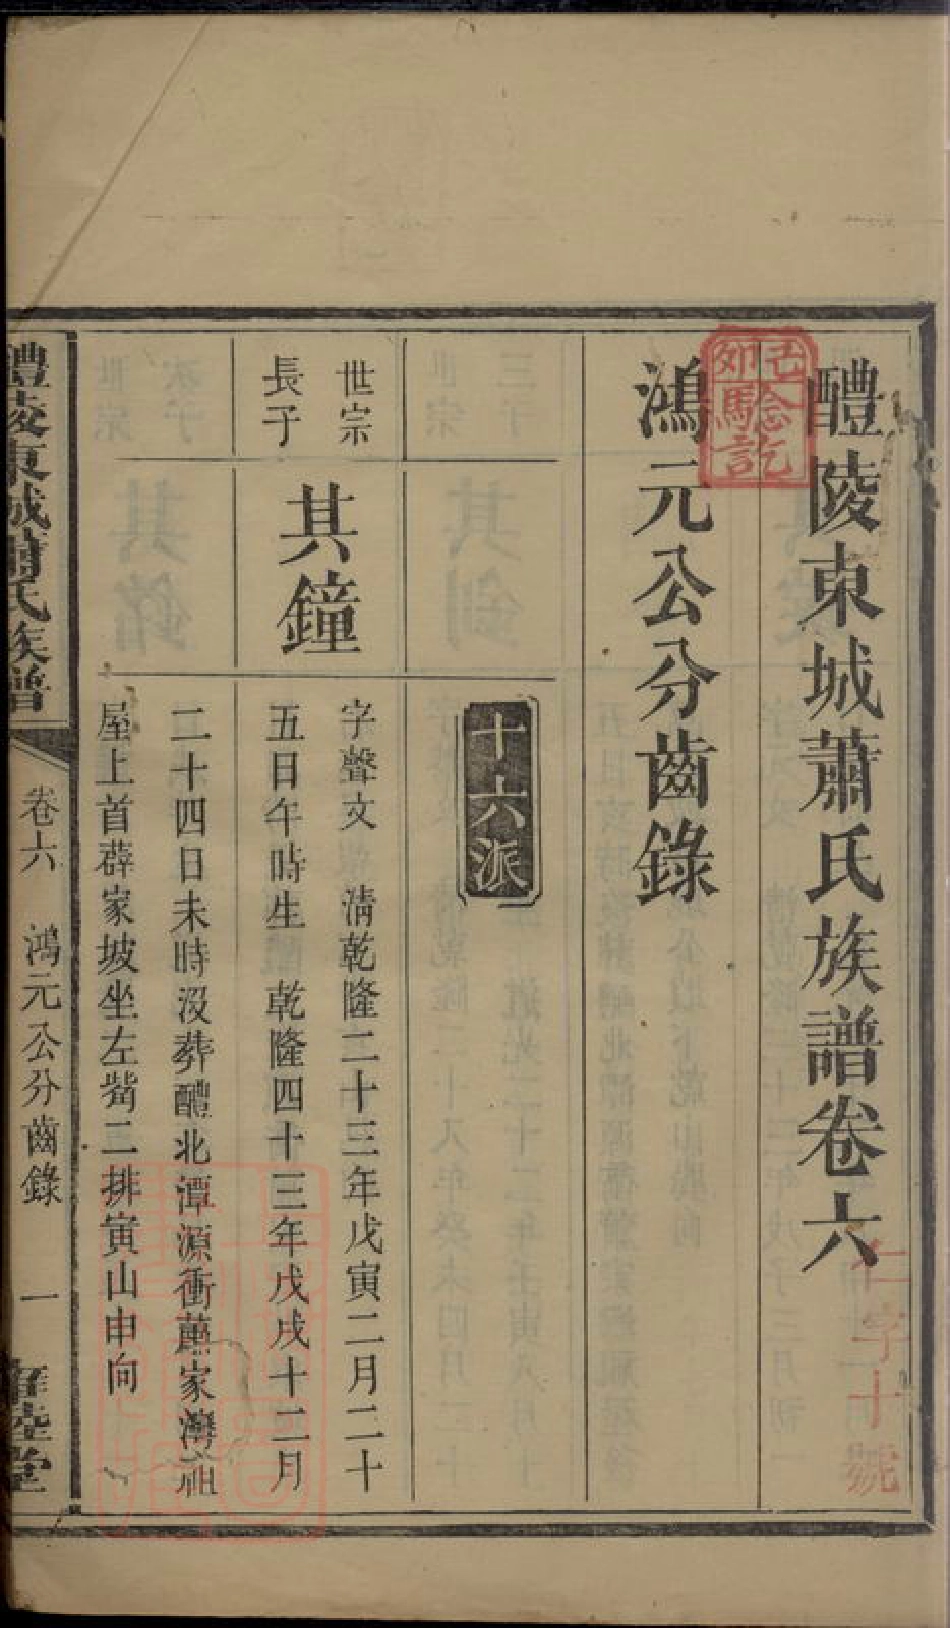 醴陵東城蕭氏族譜卷六
仁字十號
鴻元公分齒錄
十六派
世宗
長子
其鐘
字聲文 清乾隆二十三年戊寅二月二十
五日午時生 乾隆四十三年戊戌十二月
二十四日未時沒葬醴北潭源衝蕉家灣祖
屋上首薜家坡坐左觜二排寅山申向
醴陵東城蕭氏族譜
卷六 鴻元公分齒錄 一
堂